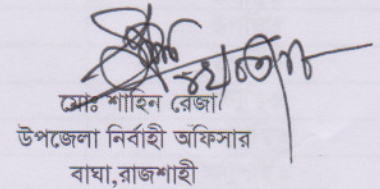 মোঃ শাহিন রেজা
উপজেলা নির্বাহী অফিসার
বাঘা,রাজশাহী